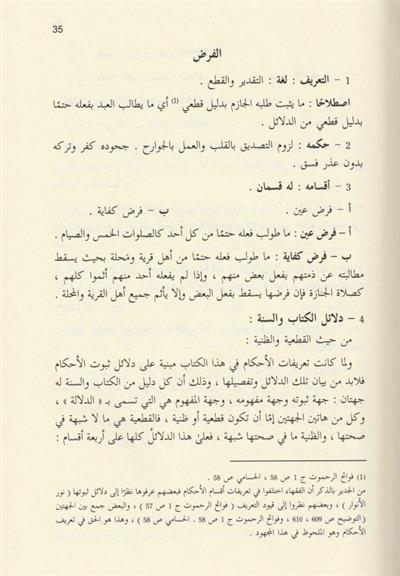 35
الفرض
1 – التعريف : لغة : التقدير والقطع .
اصطلاحًا : ما يثبت طلبه الجازم بدليل قطعي (1) أي ما يطالب العبد بفعله حتمًا
بدليل قطعي من الدلائل .
2 – حكمه : لزوم التصديق بالقلب والعمل بالجوارح . جحوده كفر وتركه
بدون عذر فسق .
3 – أقسامه : له قسمان .
أ – فرض عين . ب – فرض كفاية .
أ – فرض عين : ما طولب فعله حتمًا من كل أحد كالصلوات الخمس والصيام .
ب – فرض كفاية : ما طولب فعله حتمًا من أهل قرية ومَحلة بحيث يسقط
مطالبته عن ذمتهم بفعل بعض منهم ، وإذا لم يفعله أحد منهم أثموا كلهم ،
كصلاة الجنازة فإن فرضها يسقط بفعل البعض وإلا يأثم جميع أهل القرية والمحلة .
4 – دلائل الكتاب والسنة :
من حيث القطعية والظنية :
ولما كانت تعريفات الأحكام في هذا الكتاب مبنية على دلائل ثبوت الأحكام
فلابد من بيان تلك الدلائل وتفصيلها ، وذلك أن كل دليل من الكتاب والسنة له
جهتان : جهة ثبوته وجهة مفهومه ، وجهة المفهوم هي التي تسمى بـ « الدلالة » ،
وكل من هاتين الجهتين إمّا أن تكون قطعية أو ظنية ، فالقطعية هي ما لا شبهة في
صحتها ، والظنية ما في صحتها شبهة ، فعلىٰ هذا الدلائلُ كلها على أربعة أقسام :
(1) فواتح الرحموت ج 1 ص 58 ، الحسامي ص 58 .
من الجدير بالذكر أن الفقهاء اختلفوا في تعريفات أقسام الأحكام فبعضهم عرفوها نظرًا إلى دلائل ثبوتها ( نور
الأنوار ) ، وبعضهم نظروا إلى قيود التعريف ( فواتح الرحموت ج 1 ص 57 ) ، والبعض جمع بين الجهتين
( التوضيح ص 609 ، 610 ، وفواتح الرحموت ج 1 ص 58 . الحسامي ص 58 ) ، وهذا هو الحق في تعريف
الأحكام وهو الملحوظ في هذا المجهود .